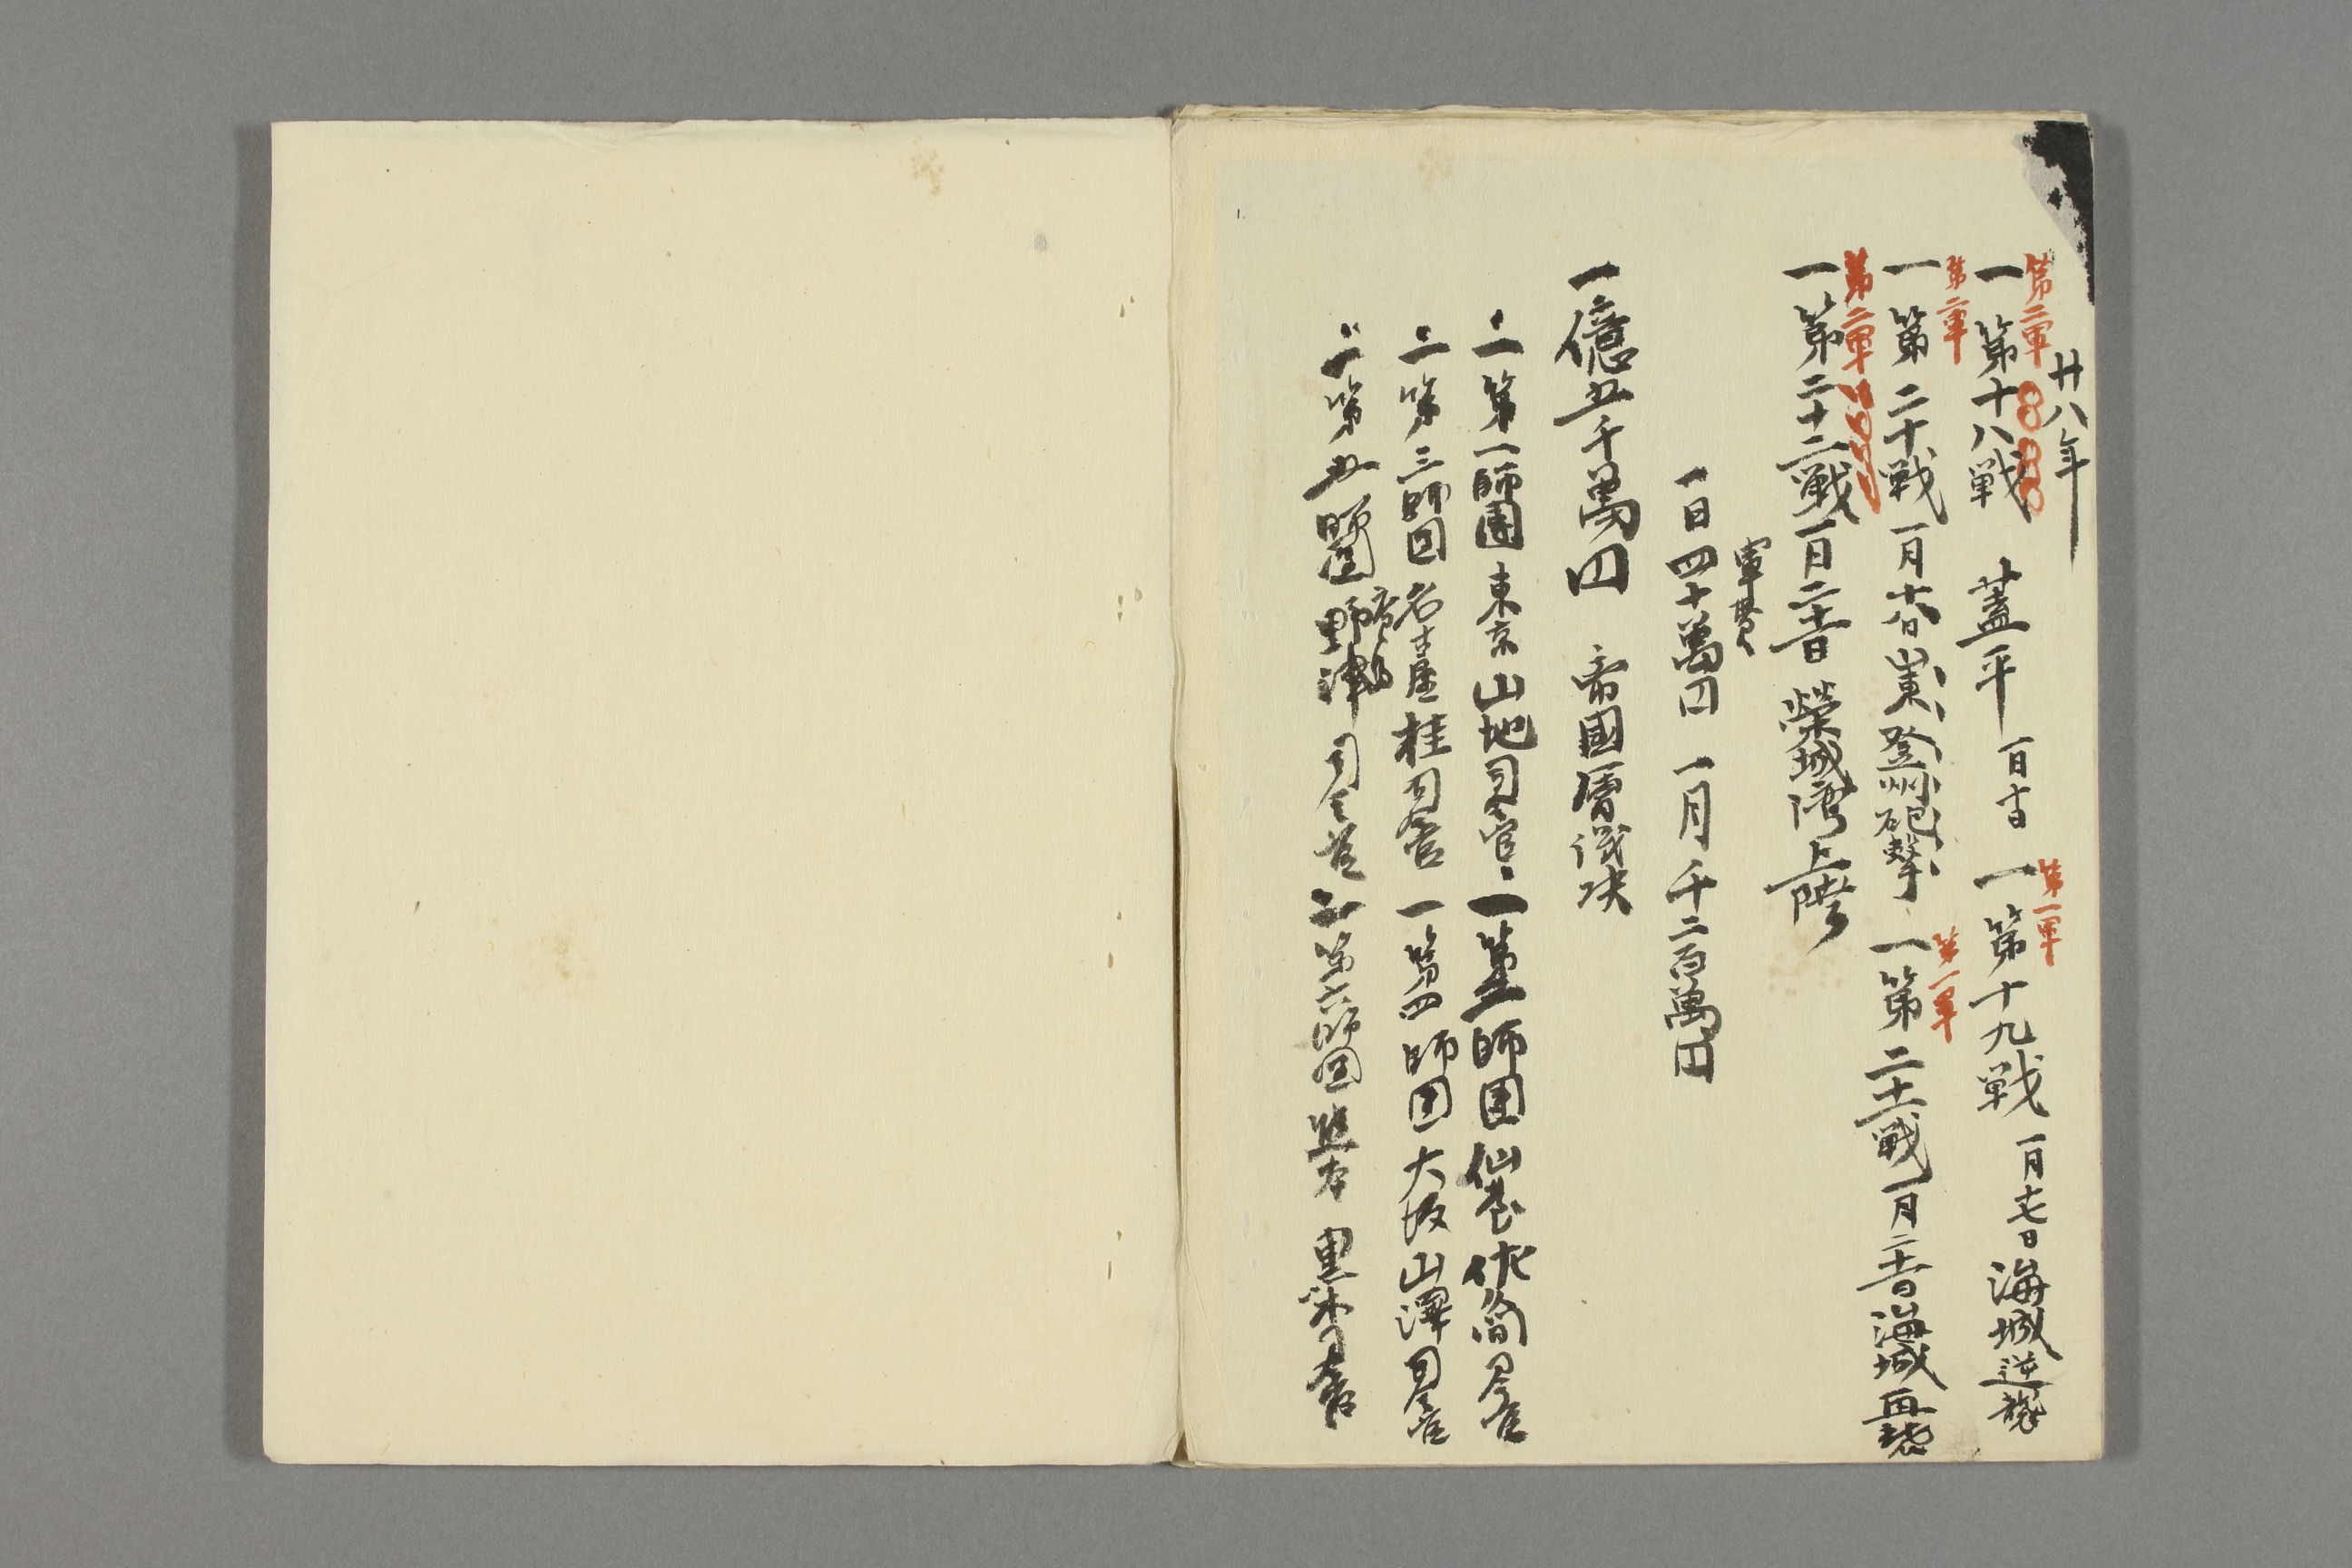 廿八年
第二軍
一第十八戦 蓋平 一月十日
第一軍
一第十九戦 一月十七日 海城逆襲
第二軍
一第二十戦 一月十八日 登州砲撃
第一軍
一第二十一戦 一月二十二日 海城再襲
第二軍
一第二十二戦 一月二十日 榮城湾上陸
軍費
一日四十萬円 一月千二百萬円
一億五千萬円 帝國會議決
一第一師團 東京 山地司令官
一第二師団 仙台 佐久間司令官
一第三師団 名古屋 桂司令官
一第四師団 大坂 山澤司令官
一第五師團 廣島 野津司令官
一第六師団 熊本 黒木司令官